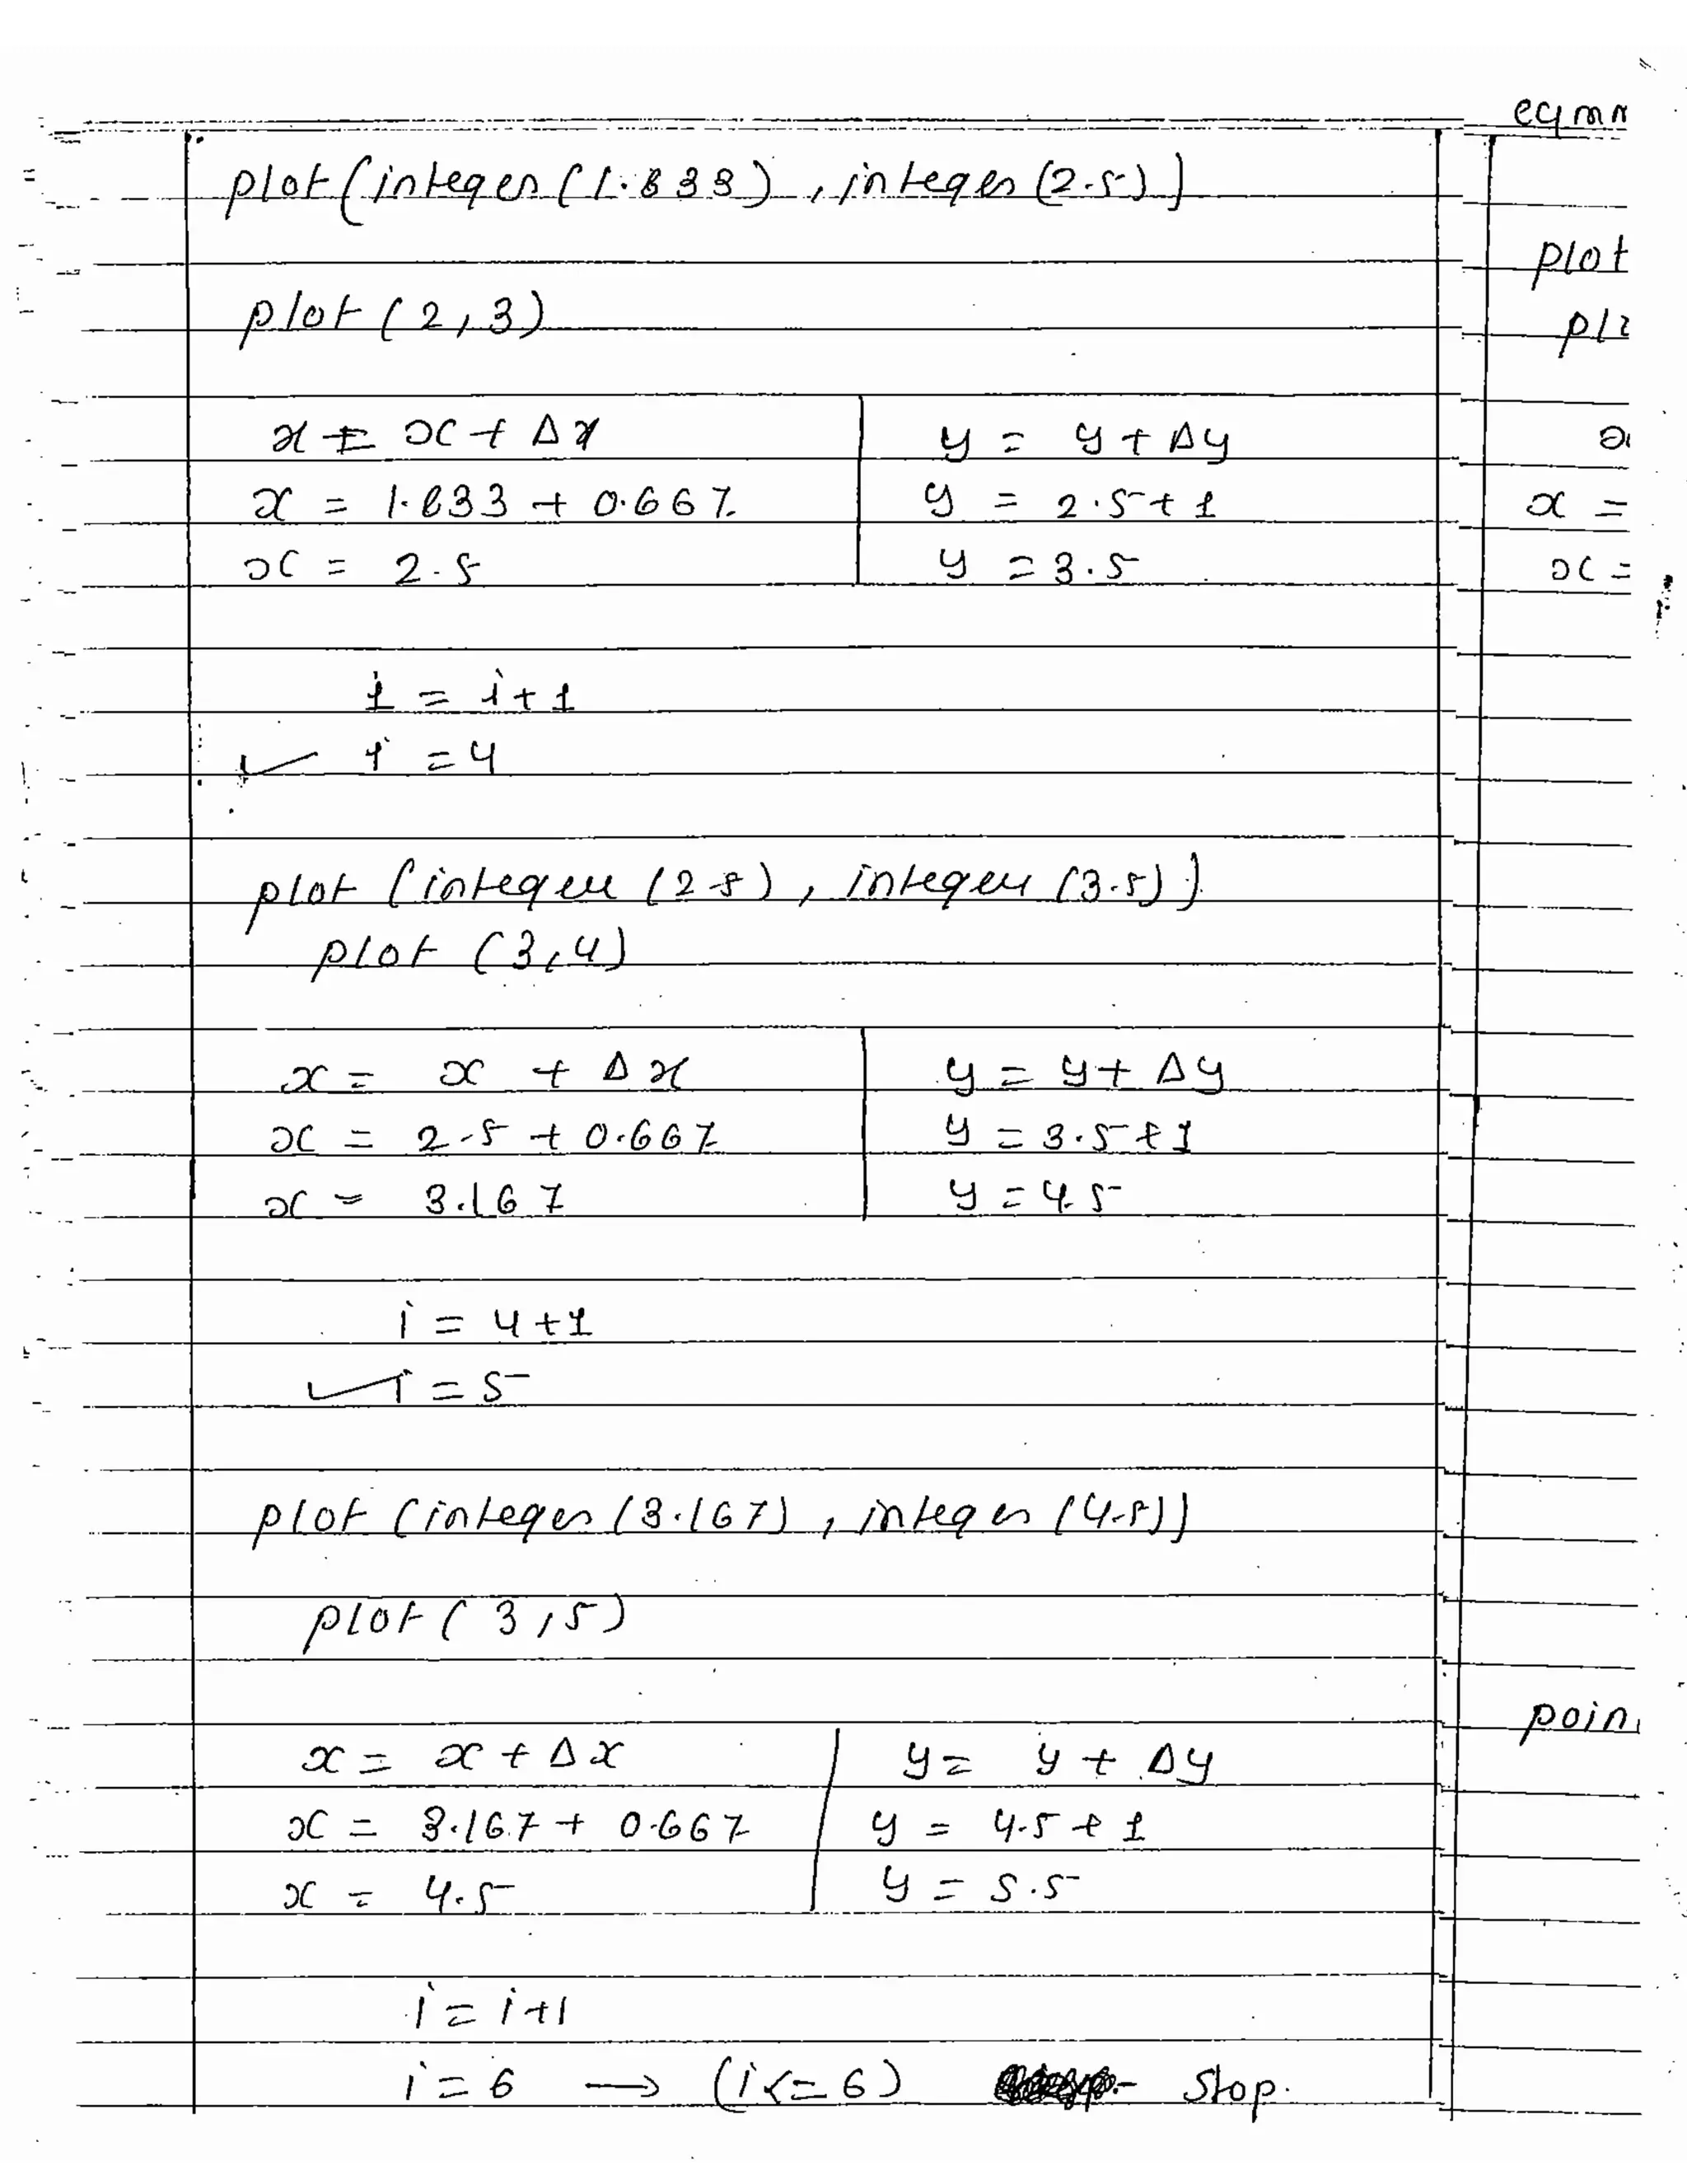 plot(integer(1.833), integer(2.5))
plot(2,3)
x = x + Δx | y = y + Δy
x = 1.833 + 0.667 | y = 2.5 + 1
x = 2.5 | y = 3.5
i = i + 1
✓ i = 4
plot (integer (2.5), integer (3.5))
plot (3,4)
x = x + Δx | y = y + Δy
x = 2.5 + 0.667 | y = 3.5 + 1
x = 3.167 | y = 4.5
i = 4 + 1
✓ i = 5
plot (integer (3.167), integer (4.5))
plot (3,5)
x = x + Δx | y = y + Δy
x = 3.167 + 0.667 | y = 4.5 + 1
x = 4.5 | y = 5.5
i = i + 1
i = 6 → (i <= 6) Stop.
plot
x =
x =
poin